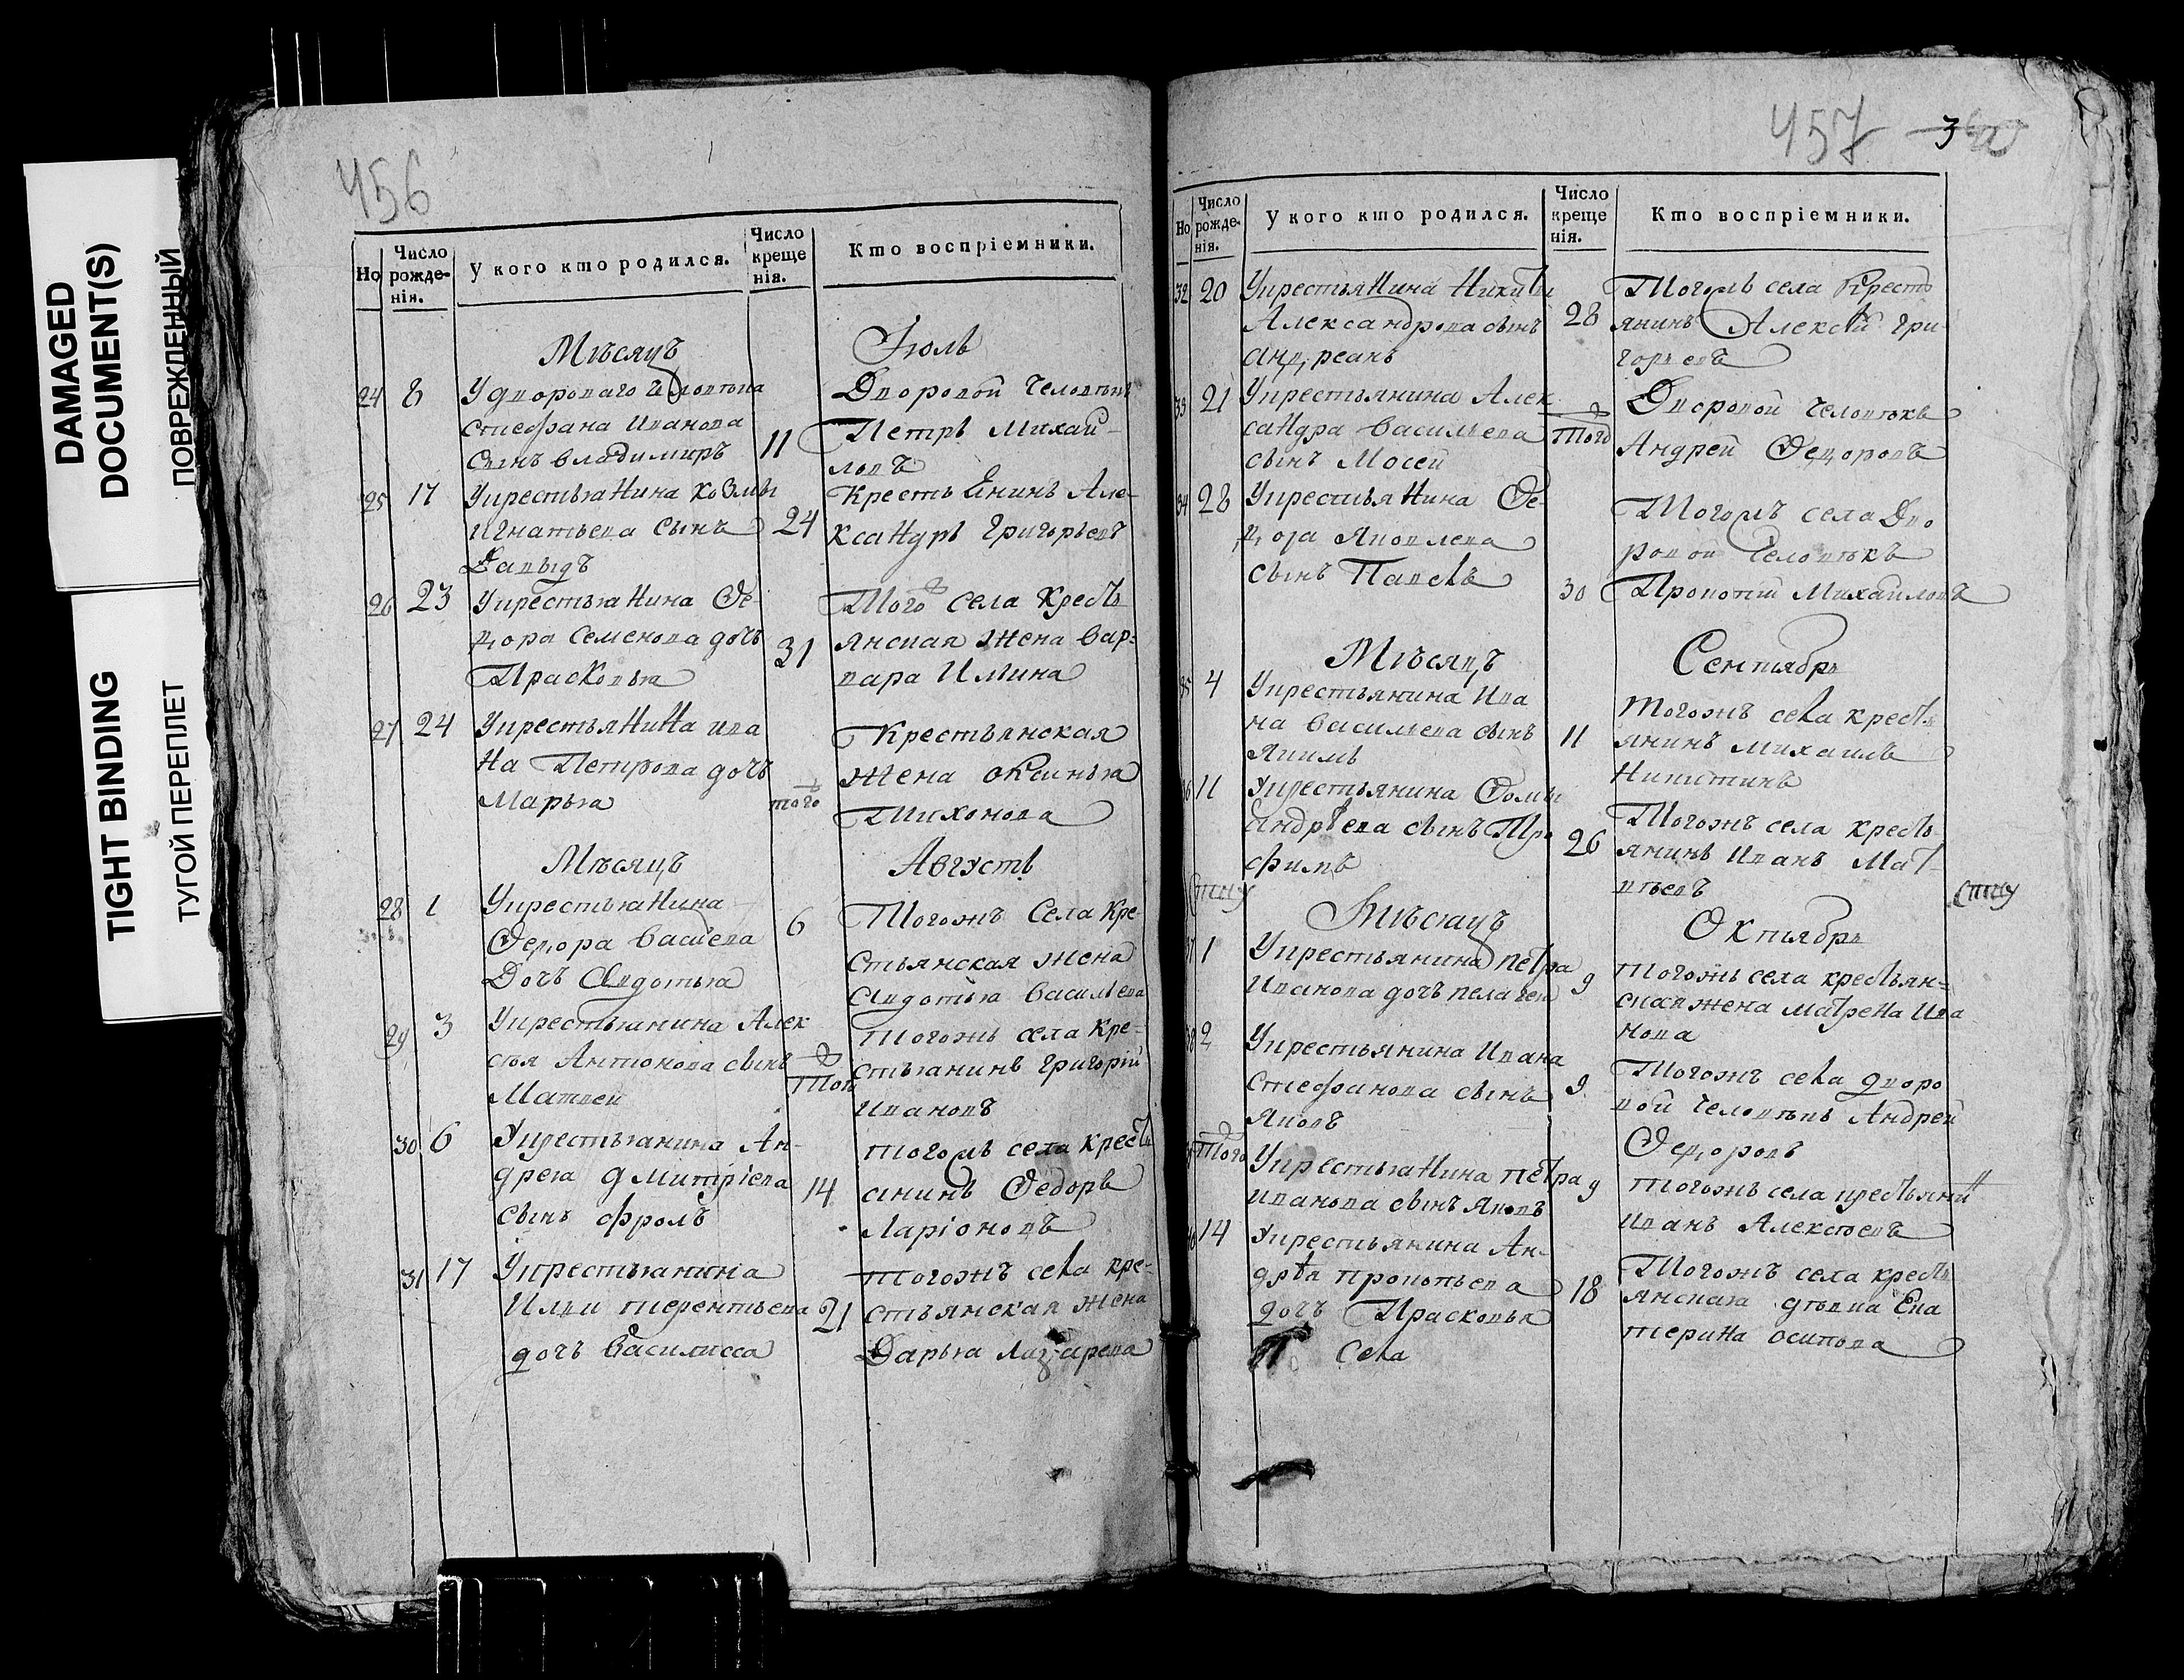 DAMAGED
DOCUMENT(S)
ПОВРЕЖДЕННЫЙ
TIGHT BINDING
ТУГОЙ ПЕРЕПЛЕТ
456
Но
Число рожде-нія.
У кого кто родился.
Число креще нія.
Кто воспріемники.
Мѣсяцъ
Іюль
24 8 У двороваго человѣка
Стефана Иванова
Сынъ владимиръ
11
Дворовой человѣкъ
Петръ Михай-
ловъ
25 17 У крестьянина козмы
игнатьева сынъ
Давыдъ
24
крестьянинъ Але-
ксандръ григорьевъ
26 23 У крестьянина Ѳе-
дора семенова дочь
Прасковья
31
Того села кресть
янская жена вар-
вара Ильина
27 24 У крестьянина ива
на Петрова дочь
Марья
того
Крестьянская
жена оксинья
Тихонова
Мѣсяцъ
Августъ
28 1 У крестьянина
Ѳедора василева
Дочь Авдотья
6
Тогожъ села кре-
стьянская жена
Авдотья васильева
29 3 У крестьянина Алек
сѣя Антонова сынъ
Матвей
того
тогожъ села кре-
стьянинъ григорій
ивановъ
30 6 У крестьянина Ан-
дрея дмитріева
сынъ фролъ
14
тогожъ села кресть
янинъ Ѳедоръ
Ларіоновъ
31 17 У крестьянина
Ильи терентьева
дочь василисса
21
тогожъ села кре-
стьянская жена
Дарья лазарева
457
Но
Число рожде-нія.
У кого кто родился.
Число креще нія.
Кто воспріемники.
32 20 У крестьянина Никиты
Александрова сынъ
андреанъ
28
Тогожъ села кресть
янинъ Алексѣй гри-
горьевъ
33 21 У крестьянина Алек
сандра васильева
сынъ Мосей
того
Дворовой человѣкъ
Андрей Ѳедоровъ
34 28 У крестьянина Ѳе-
дора Яковлева
сынъ Павелъ
30
Тогожъ села Дво
ровой человѣкъ
Прокопій Михайловъ
Мѣсяцъ
Сентябрь
35 4 У крестьянина Ива
на васильева сынъ
Якимъ
11
тогожъ села кресть
янинъ михаилъ
Никитинъ
36 11 У крестьянина Ѳомы
андрѣева сынъ Тро
фимъ
26
Тогожъ села кресть
янинъ Иванъ Мат-
вѣевъ
Мѣсяцъ
Октябрь
37 1 У крестьянина петра
Иванова дочь пелагея
9
тогожъ села крестьян-
ская жена матрена Ива
нова
38 2 У крестьянина Ивана
стефанова сынъ
Яковъ
9
Тогожъ села дворо
вой человѣкъ Андрей
Ѳедоровъ
39 того У крестьянина петра
иванова сынъ Яковъ
9
тогожъ села крестьянин
Иванъ Алексѣевъ
40 14 У крестьянина Ан-
дрѣя прокопьева
дочь Прасковья
18
Тогожъ села кресть
янская дѣвка Ека
терина осипова
Села